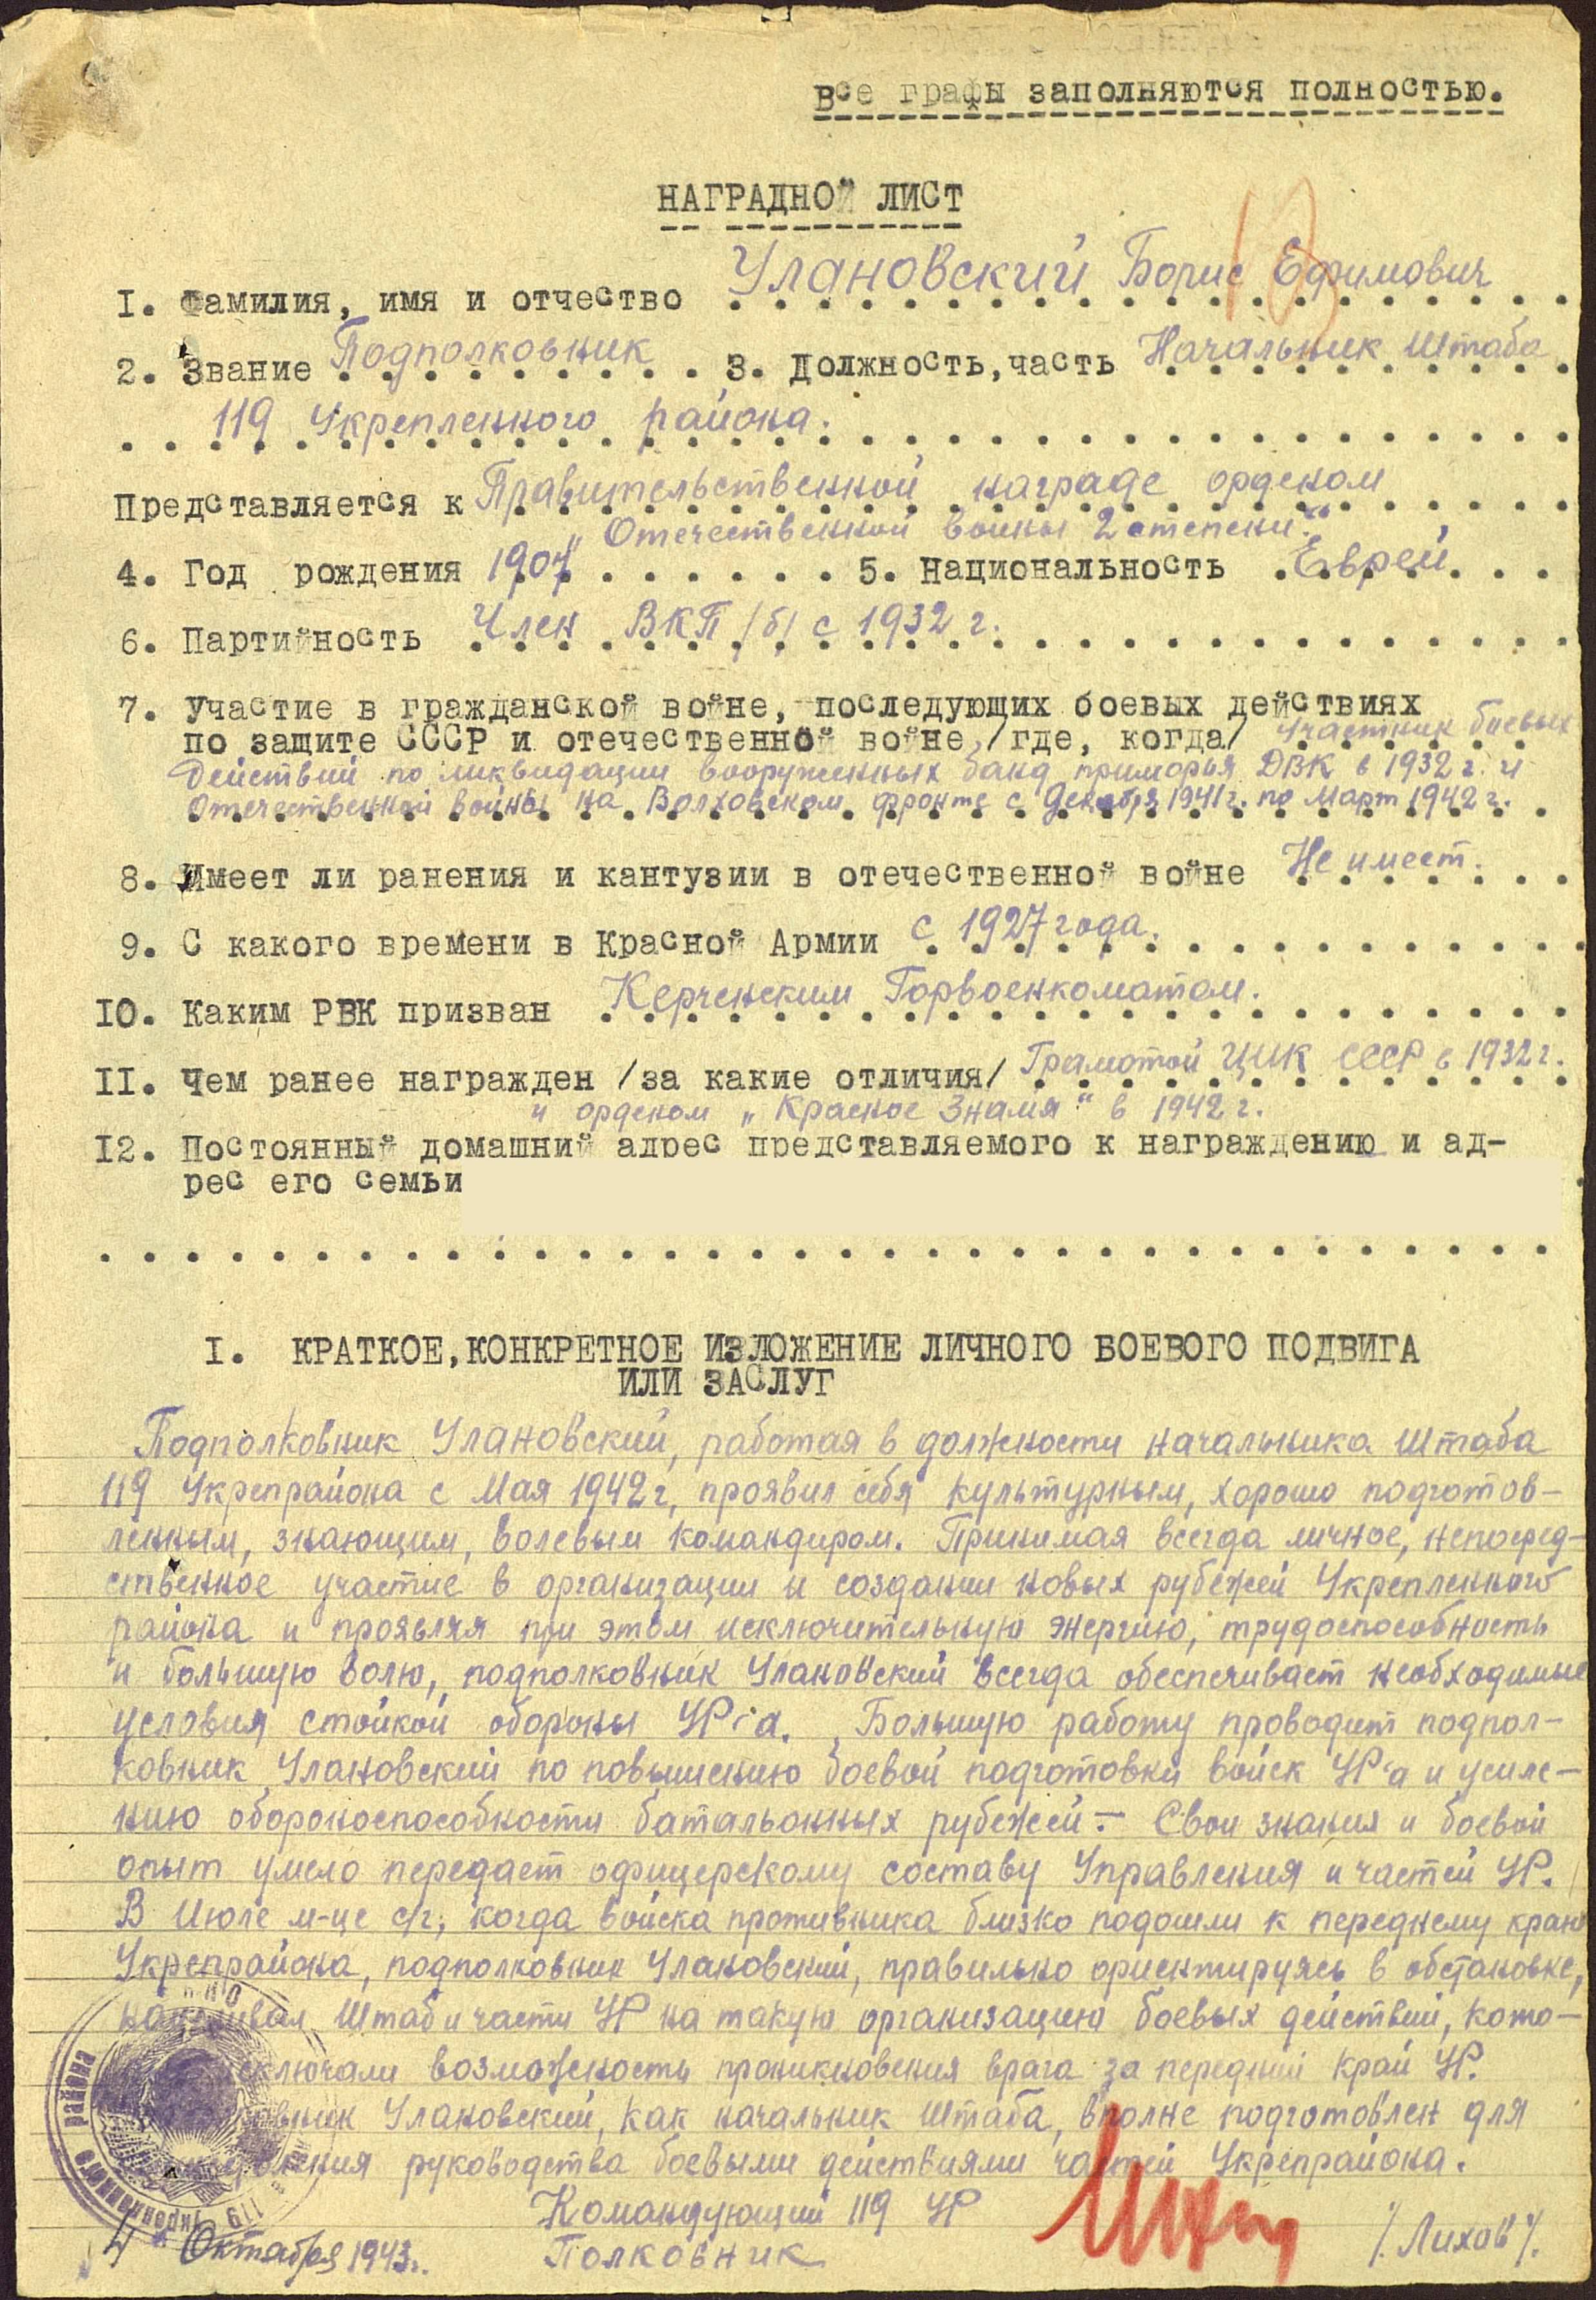 Все графы заполняются полностью.
НАГРАДНОЙ ЛИСТ
1. Фамилия, имя и отчество Улановский Борис Ефимович
2. Звание Подполковник 3. Должность, часть Начальник Штаба
119 Укрепленного района.
Представляется к Правительственной награде орденом
„Отечественной войны 2 степени".
4. Год рождения 1907 5. Национальность Еврей
6. Партийность Член ВКП/б/ с 1932 г.
7. Участие в гражданской войне, последующих боевых действиях
по защите СССР и отечественной войне /где, когда/ Участник боевых
действий по ликвидации вооруженных банд приморья ДВК в 1932 г. и
Отечественной войны на Волховском фронте с Декабря 1941 г. по Март 1942 г.
8. Имеет ли ранения и кантузии в отечественной войне Не имеет.
9. С какого времени в Красной Армии с 1927 года.
10. Каким РВК призван Керченским Горвоенкоматом.
11. Чем ранее награжден /за какие отличия/ Грамотой ЦИК СССР в 1932 г.
и орденом „Красное Знамя" в 1942 г.
12. Постоянный домашний адрес представляемого к награждению и ад-
рес его семьи
I. КРАТКОЕ, КОНКРЕТНОЕ ИЗЛОЖЕНИЕ ЛИЧНОГО БОЕВОГО ПОДВИГА
ИЛИ ЗАСЛУГ
Подполковник Улановский, работая в должности начальника Штаба
119 Укрепрайона с Мая 1942 г, проявил себя культурным, хорошо подготов-
ленным, знающим, волевым командиром. Принимая всегда личное, непосред-
ственное участие в организации и создании новых рубежей Укрепленного
района и проявляя при этом исключительную энергию, трудоспособность
и большую волю, подполковник Улановский всегда обеспечивает необходимые
условия стойкой обороны УР'а. Большую работу проводит подпол-
ковник Улановский по повышению боевой подготовки войск УР'а и усиле-
нию обороноспособности батальонных рубежей. – Свои знания и боевой
опыт умело передает офицерскому составу Управления и частей УР.
В Июле м-це с/г, когда войска противника близко подошли к переднему краю
Укрепрайона, подполковник Улановский, правильно ориентируясь в обстановке,
нацеливал Штаб и части УР на такую организацию боевых действий, кото-
сключали возможность проникновения врага за передний край УР.
ковник Улановский, как начальник Штаба, вполне подготовлен для
руководства боевыми действиями частей Укрепрайона.
Командующий 119 УР
Полковник /Лихов/.
4 Октября 1943 г.
119 Укрепленного района